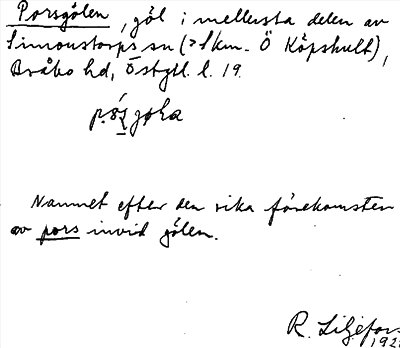 Porsgölen, göl i mellersta delen av
Simonstorps sn (>1 km. Ö Köpshult),
Bråbo hd, Östgtl. l. 19.
Namnet efter den rika förekomsten
av pors invid gölen.
R. Liljefors